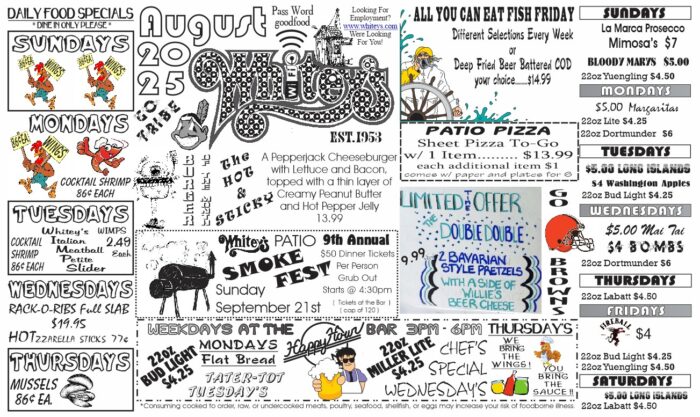 DAILY FOOD SPECIALS
* DINE IN ONLY PLEASE *
SUNDAYS
BIGGER
WINGS
BIGGER
WINGS
MONDAYS
BIGGER
WINGS
COCKTAIL SHRIMP
86¢ EACH
TUESDAYS
COCKTAIL
SHRIMP
86¢ EACH
Whitey's WIMPS
Italian
Meatball
Petite
Slider
2.49
Each
WEDNESDAYS
RACK-O-RIBS Full SLAB
$19.95
HOTzzARELLA STICKS 77¢
THURSDAYS
MUSSELS
86¢ EA.
August
2025
Pass Word
goodfood
Looking For
Employment?
www.whiteys.com
Were Looking
For You!
WIFI
Whitey's
EST.1953
GO
TRIBE
BURGER
OF THE MONTH
THE
HOT
&
STICKY
A Pepperjack Cheeseburger
with Lettuce and Bacon,
topped with a thin layer of
Creamy Peanut Butter
and Hot Pepper Jelly
13.99
Whitey's PATIO
SMOKE
FEST
Sunday
September 21st
9th Annual
$50 Dinner Tickets
Per Person
Grub Out
Starts @ 4:30pm
( Tickets at the Bar )
( cap of 120 )
ALL YOU CAN EAT FISH FRIDAY
Different Selections Every Week
or
Deep Fried Beer Battered COD
your choice.....$14.99
PATIO PIZZA
Sheet Pizza To-Go
w/ 1 Item......... $13.99
each additional item $1
comes w/ paper and plates for 6
LIMITED TIME OFFER
THE
DOUBLE DOUBLE
9.99
2 BAVARIAN
STYLE PRETZELS
WITH A SIDE OF
WILLIES
BEER CHEESE
GO
BROWNS
WEEKDAYS AT THE Happy Hour BAR 3PM - 6PM
22oz
BUD LIGHT
$4.25
MONDAYS
Flat Bread
TATER-TOT
TUESDAY'S
22oz
MILLER LITE
$4.25
CHEF'S
SPECIAL
WEDNESDAY'S
THURSDAY'S
WE
BRING
THE
WINGS!
YOU
BRING
THE
SAUCE!!
*Consuming cooked to order, raw, or undercooked meats, poultry, seafood, shellfish, or eggs may increase your risk of foodborne illness
SUNDAYS
La Marca Prosecco
Mimosa's $7
BLOODY MARYS $5.00
22oz Yuengling $4.50
MONDAYS
$5.00 Margaritas
22oz Lite $4.25
22oz Dortmunder $6
TUESDAYS
$5.00 LONG ISLANDS
$4 Washington Apples
22oz Bud Light $4.25
WEDNESDAYS
$5.00 Mai Tai
$4 BOMBS
22oz Dortmunder $6
THURSDAYS
22oz Labatt $4.50
FRIDAYS
FIREBALL
$4
22oz Bud Light $4.25
22oz Yuengling $4.50
SATURDAYS
$5.00 LONG ISLANDS
22oz Labatt $4.50